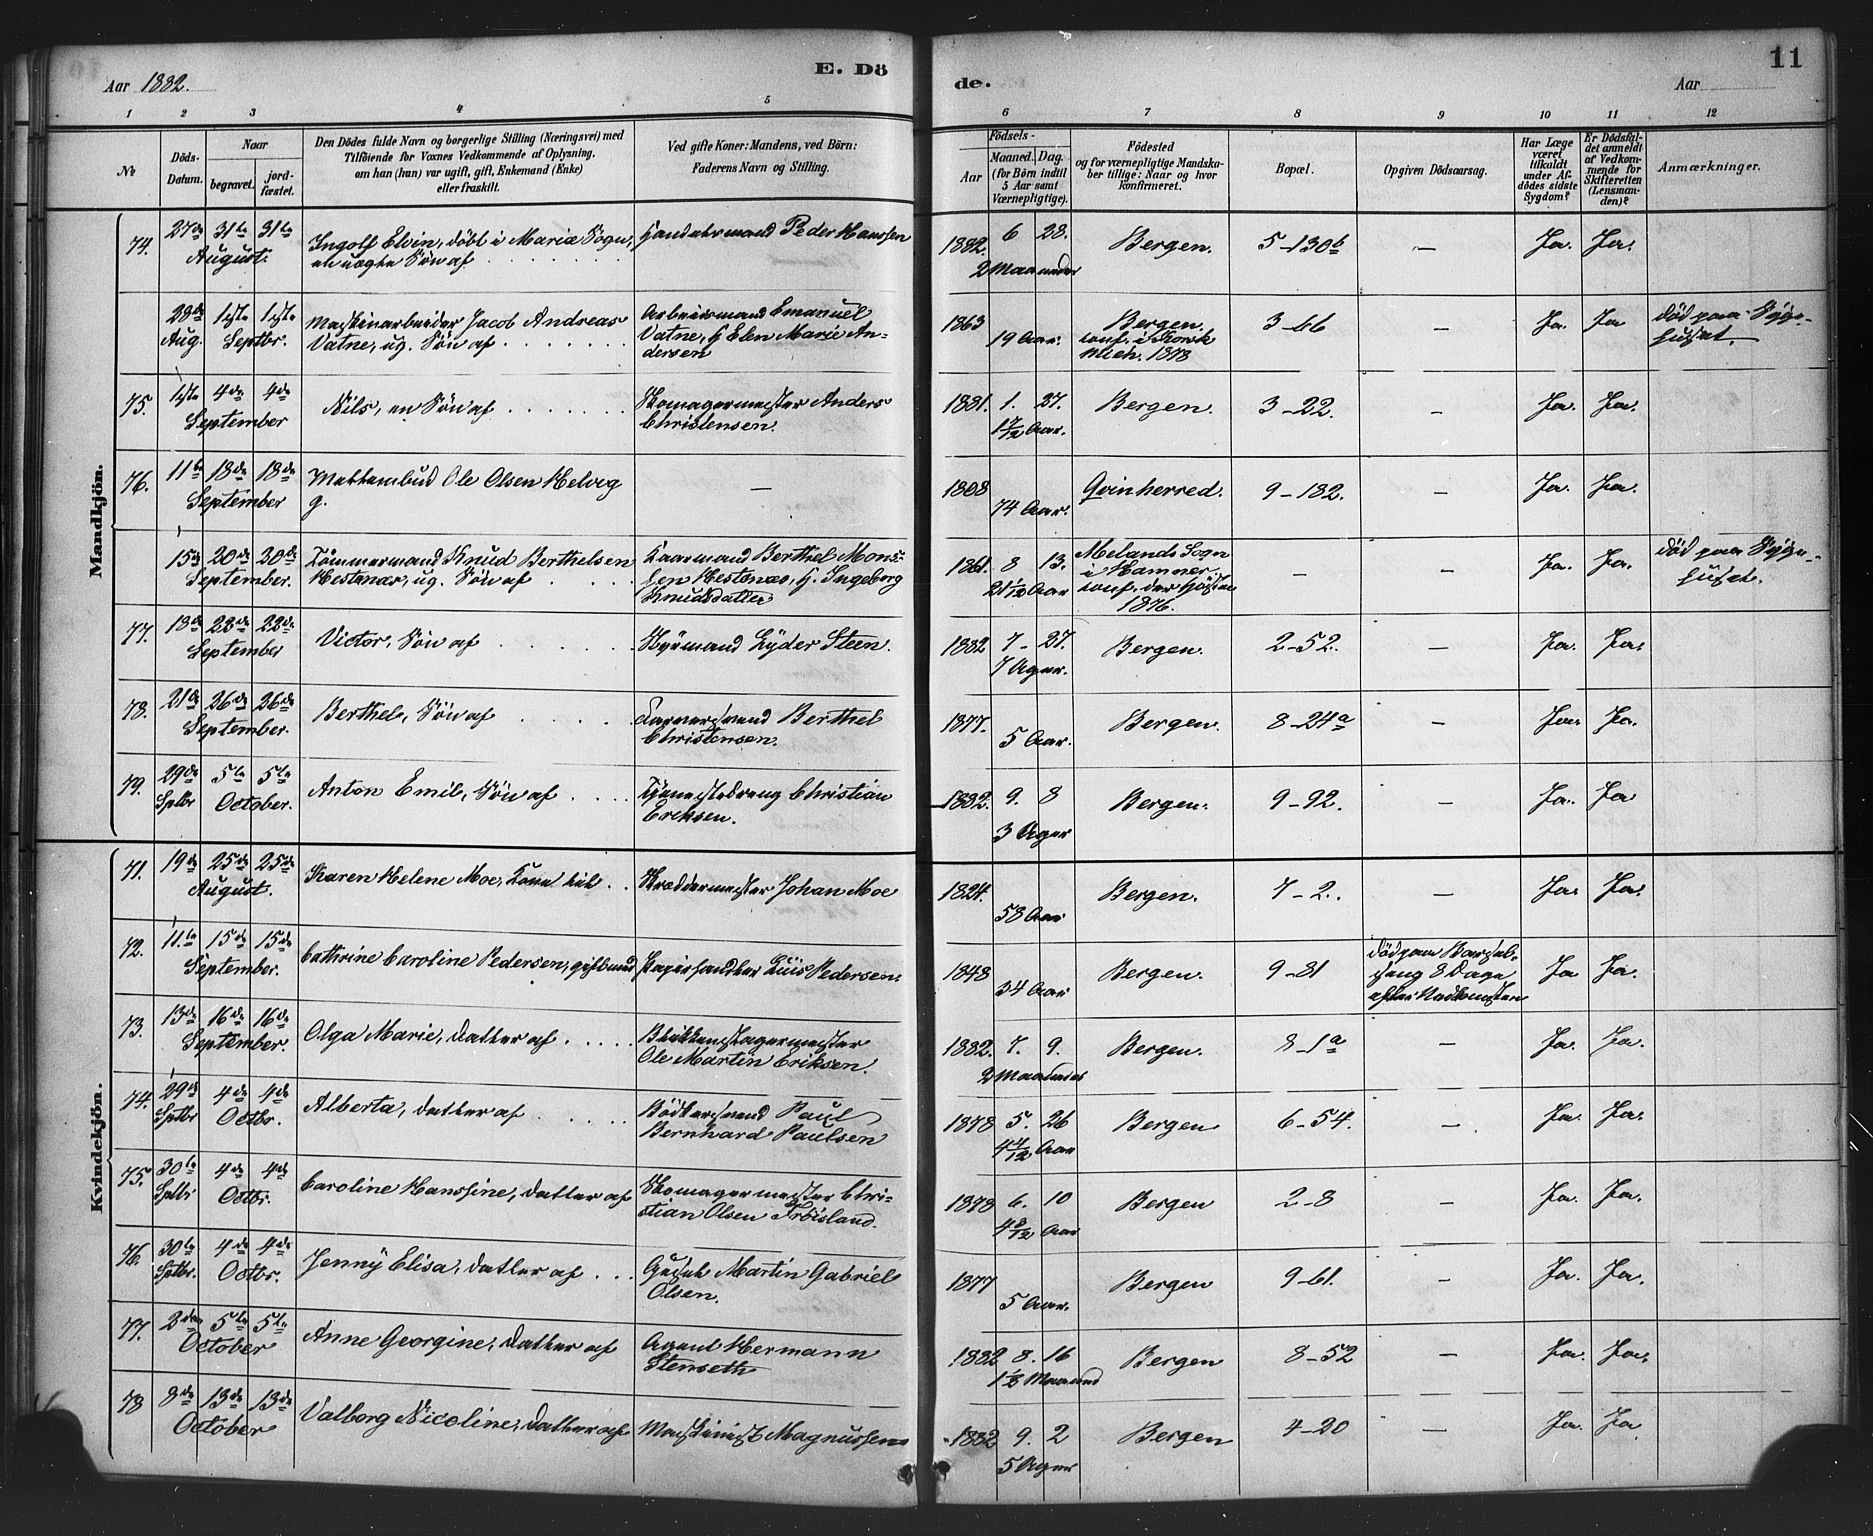 Aar 1882.
E. Dö
de.
Aar
11
1 2 3 4 5 6 7 8 9 10 11 12
No
Döds-Datum.
Naar
begravet.
jord-fæstet.
Den Dödes fulde Navn og borgerlige Stilling (Næringsvei) med
Tilföiende for Voxnes Vedkommende af Oplysning,
om han (hun) var ugift, gift, Enkemand (Enke)
eller fraskilt.
Ved gifte Koner: Mandens, ved Börn:
Faderens Navn og Stilling.
Födsels-
Aar
Maaned. Dag.
(for Börn indtil
5 Aar samt
Værnepligtige).
Födested
og for værnepligtige Mandska-
ber tillige: Naar og hvor
konfirmeret.
Bopæl.
Opgiven Dödsaarsag.
Har Læge
været
tilkaldt
under Af-
dödes sidste
Sygdom?
Er Dödsfal-
det anmeldt
af Vedkom-
mende for
Skifteretten
(Lensman-
den)?
Anmærkninger.
Mandkjön.
74. 27de 31te 31te August. Ingolf Elvin, döbt i Mariæ Sogn, en uægte Sön af Handelsmand Peder Hanssen 1882. 6 28. 2 Maaneder Bergen. 5-130b — Ja. Ja.
28de Aug. 1ste 1ste Septbr. Maskinarbeider Jacob Andreas Vatne, ug. Sön af Arbeidsmand Emanuel Vatne, H Elen Marie Andersen 1863 19 Aar. Bergen. conf. i Korsk Mich. 1878 3-66 — Ja. Ja Död paa Sygehuset.
75. 1ste 4de 4de September Nils, en Sön af Skomagermester Anders Christensen. 1881. 1. 27. 1 7/12 Aar. Bergen. 3-22. — Ja. Ja.
76. 11te 18de 18de September Ole Olsen Helvig g. — 1808 74 Aar. Qvinherred. 9-182. — Ja. Ja.
15de 20de 20de September. Tömmermand Knud Berthelsen Hestenæs, ug. Sön af Gaarmand Berthel Monssen Hestenæs, H. Ingeborg Knudsdatter 1861. 8 13. 21 1/12 Aar Melands Sogn i Hammer. conf. der Hösten 1876. — — Ja. Ja. Död paa Sygehuset.
77. 18de 22de 22de September Victor, Sön af Styrmand Lyder Steen. 1882 7- 27. 7 Uger. Bergen. 2-52. — Ja. Ja.
78. 21de 26de 26de September. Berthel, Sön af Farversvend Berthel Christensen. 1877. 5 Aar. Bergen. 8-24a — Ja. Ja.
79. 29de Sptbr 5te 5te October. Anton Emil, Sön af Tjenestedreng Christian Eriksen. 1882. 9. 8 3 Uger Bergen. 9-92. — Ja. Ja
Kvindekjön.
71. 19de 25de 25de August. Karen Helene Moe, Kone til Skræddermester Johan Moe 1824. 58 Aar Bergen. 7-2. — Ja. Ja.
72. 11te 15de 15de September. Cathrine Caroline Pedersen, gift med Papirhandler Luis Pedersen. 1848 34 Aar Bergen. 9-81 Död paa Barselseng 8 Dage efter Nedkomsten Ja Ja.
73. 13de 16de 16de September. Olga Marie, Datter af Blikkenslagermester Ole Martin Eriksen. 1882. 7. 9. 2 Maaneder Bergen. 8-1a — Ja. Ja.
74. 29de Sptbr 4de 4de Octbr. Alberta, Datter af Bödkersvend Paul Bernhard Paulsen 1878 5. 26 4 4/12 Aar Bergen 6-54. — Ja. Ja.
75. 30te Sptbr 4de 4de Octbr. Caroline Hanssine, Datter af Skomagermester Christian Olsen Fröisland. 1878 6. 10 4 3/12 Aar Bergen 2-8 — Ja. Ja.
76. 30te Sptbr. 4de 4de Octbr. Jenny Elisa, Datter af Martin Gabriel Olsen. 1877 5 Aar. Bergen 9-61. — Ja. Ja.
77. 2den 5te 5te October Anne Georgine, Datter af Agent Hermann Stenseth 1882 8. 16 1 1/2 Maaned Bergen 8-52 — Ja. Ja.
78 8de 13de 13de October Valborg Nicoline, Datter af Maskinist Magnussen 1882 9. 2 5 Uger Bergen 4-20 — Ja. Ja.